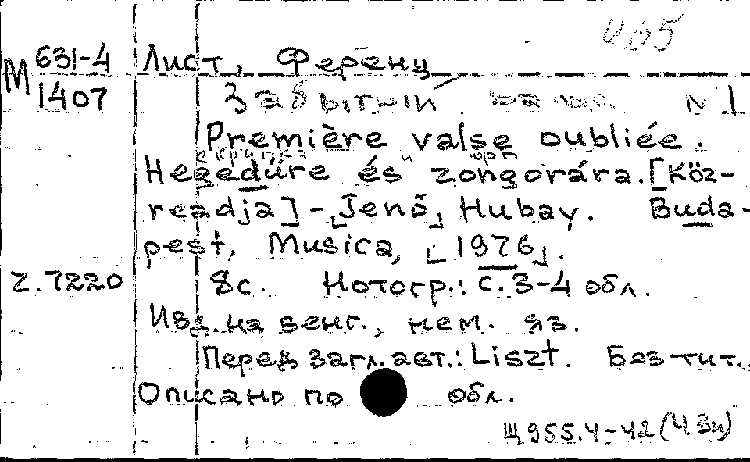 М 631-4
1407
Лист, Ференц
Забытый вальс. N 1
Première valse oubliée.
скрипка и форт
Hegedűre és zongorára. [Köz-
readja] - Jenő, Hubay. Buda-
pest, Musica, [1976].
Z. 7220
8с. Нотогр.: с. 3-4 обл.
Изд. на венг., нем. яз.
Перед загл. авт.: Liszt. Без тит.
Описано по обл.
Щ955.4-42